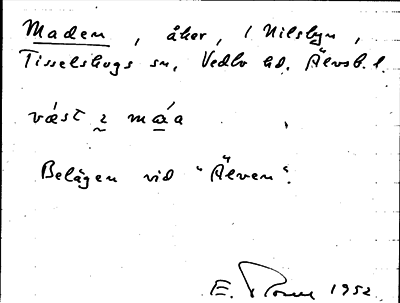 Maden, åker, i Nilsbyn,
Tisselskogs sn, Vedbo hd. Älvsb. l.
væst i máa
Belägen vid "Älven".
E. 1952